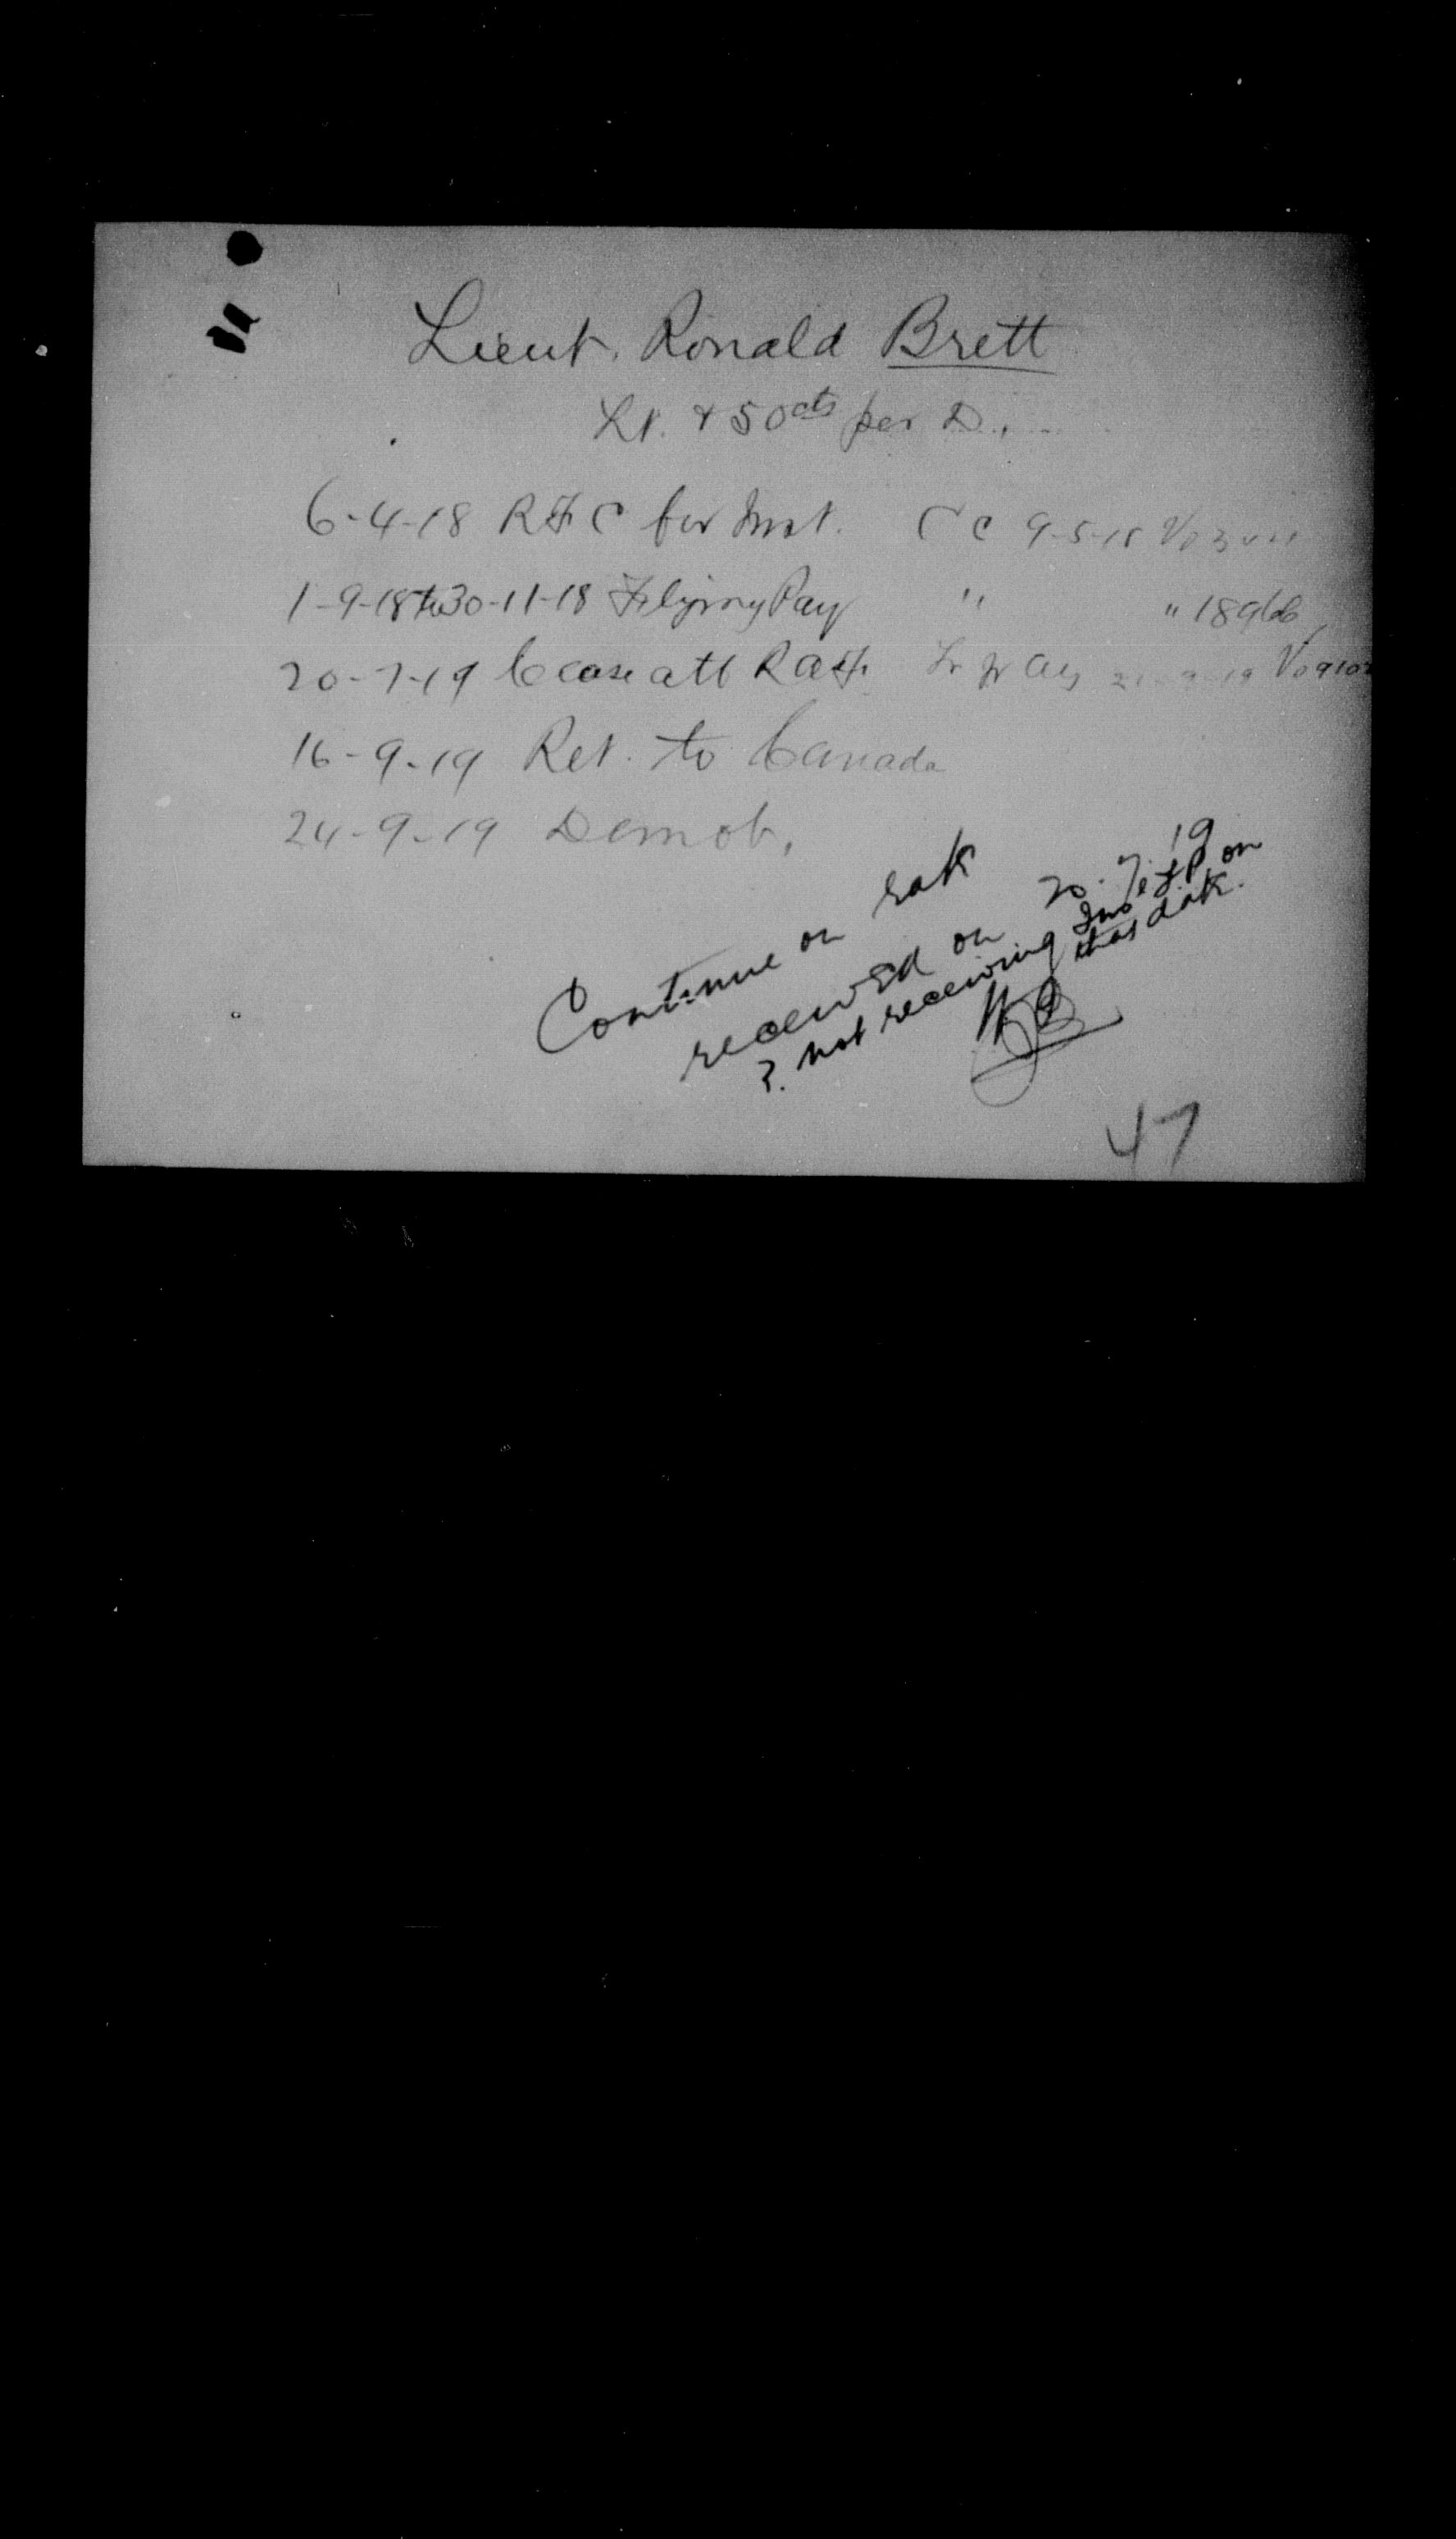 Lieut. Ronald Brett
Lt. + 50cts per D.
6-4-18 RFC for Inst. CC 9-5-18
1-9-18 to 30-11-18 Flying Pay " " 18966
20-7-19 Cease att RAF
16-9-19 Ret. to Canada
24-9-19 Demob.
Continue on rate
received on 20.7.19
? not receiving on
that date.
47